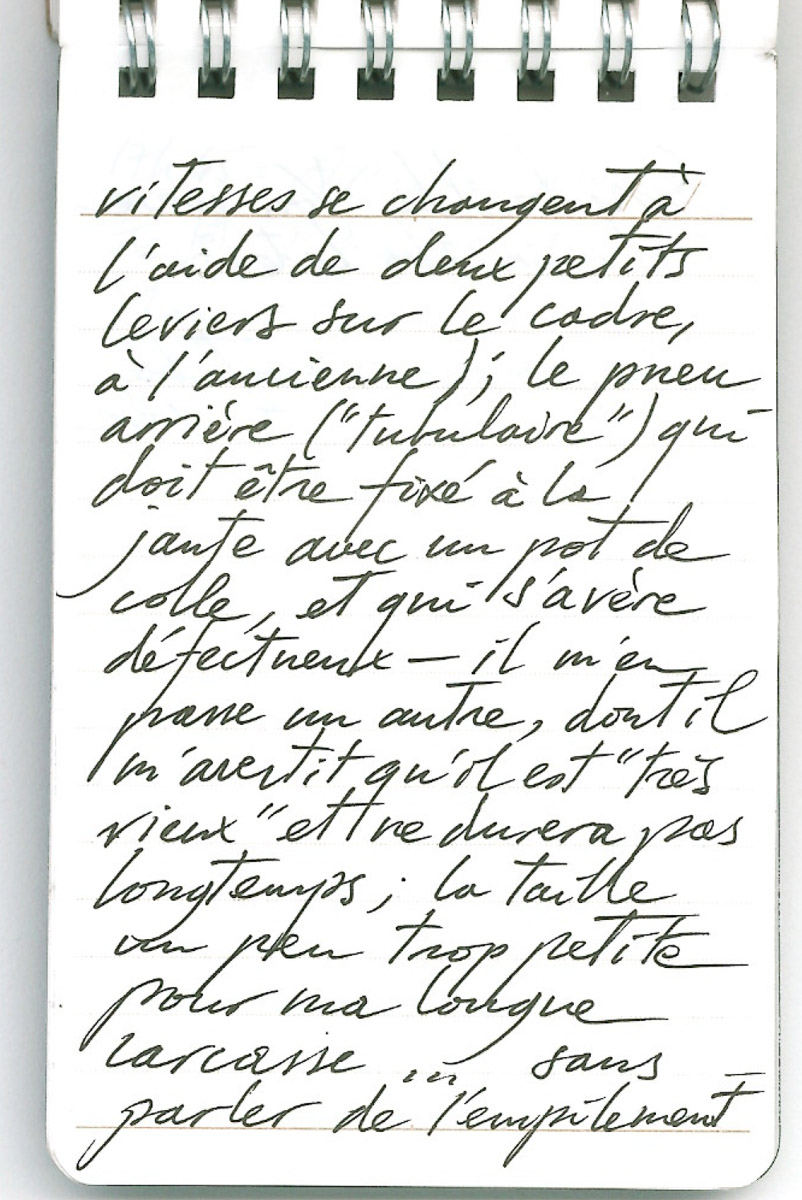 vitesses se changent à
l'aide de deux petits
leviers sur le cadre,
à l'ancienne) ; le pneu
arrière ("tubulaire") qui
doit être fixé à la
jante avec un pot de
colle, et qui s'avère
défectueux — il m'en
passe un autre, dont il
m'avertit qu'il est "très
vieux" et ne durera pas
longtemps ; la taille
un peu trop petite
pour ma longue
carcasse ... sans
parler de l'empilement